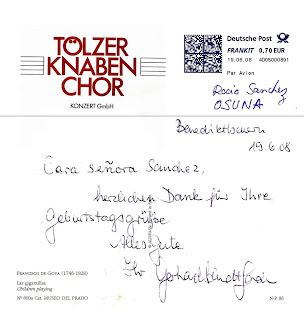 TÖLZER
KNABEN
CHOR
KONZERT GmbH
Deutsche Post
FRANKIT 0,70 EUR
19.06.08 4D05000891
Par Avion
Rocio Sanchez
OSUNA
Benediktbeuern
19.6.08
Cara señora Sanchez,
herzlichen Dank für Ihre
Geburtstagsgrüße
Alles Gute
Ihr
FRANCISCO DE GOYA (1746-1828)
Las gigantillas
Children playing
Nº 800a Cat. MUSEO DEL PRADO
N-P 86